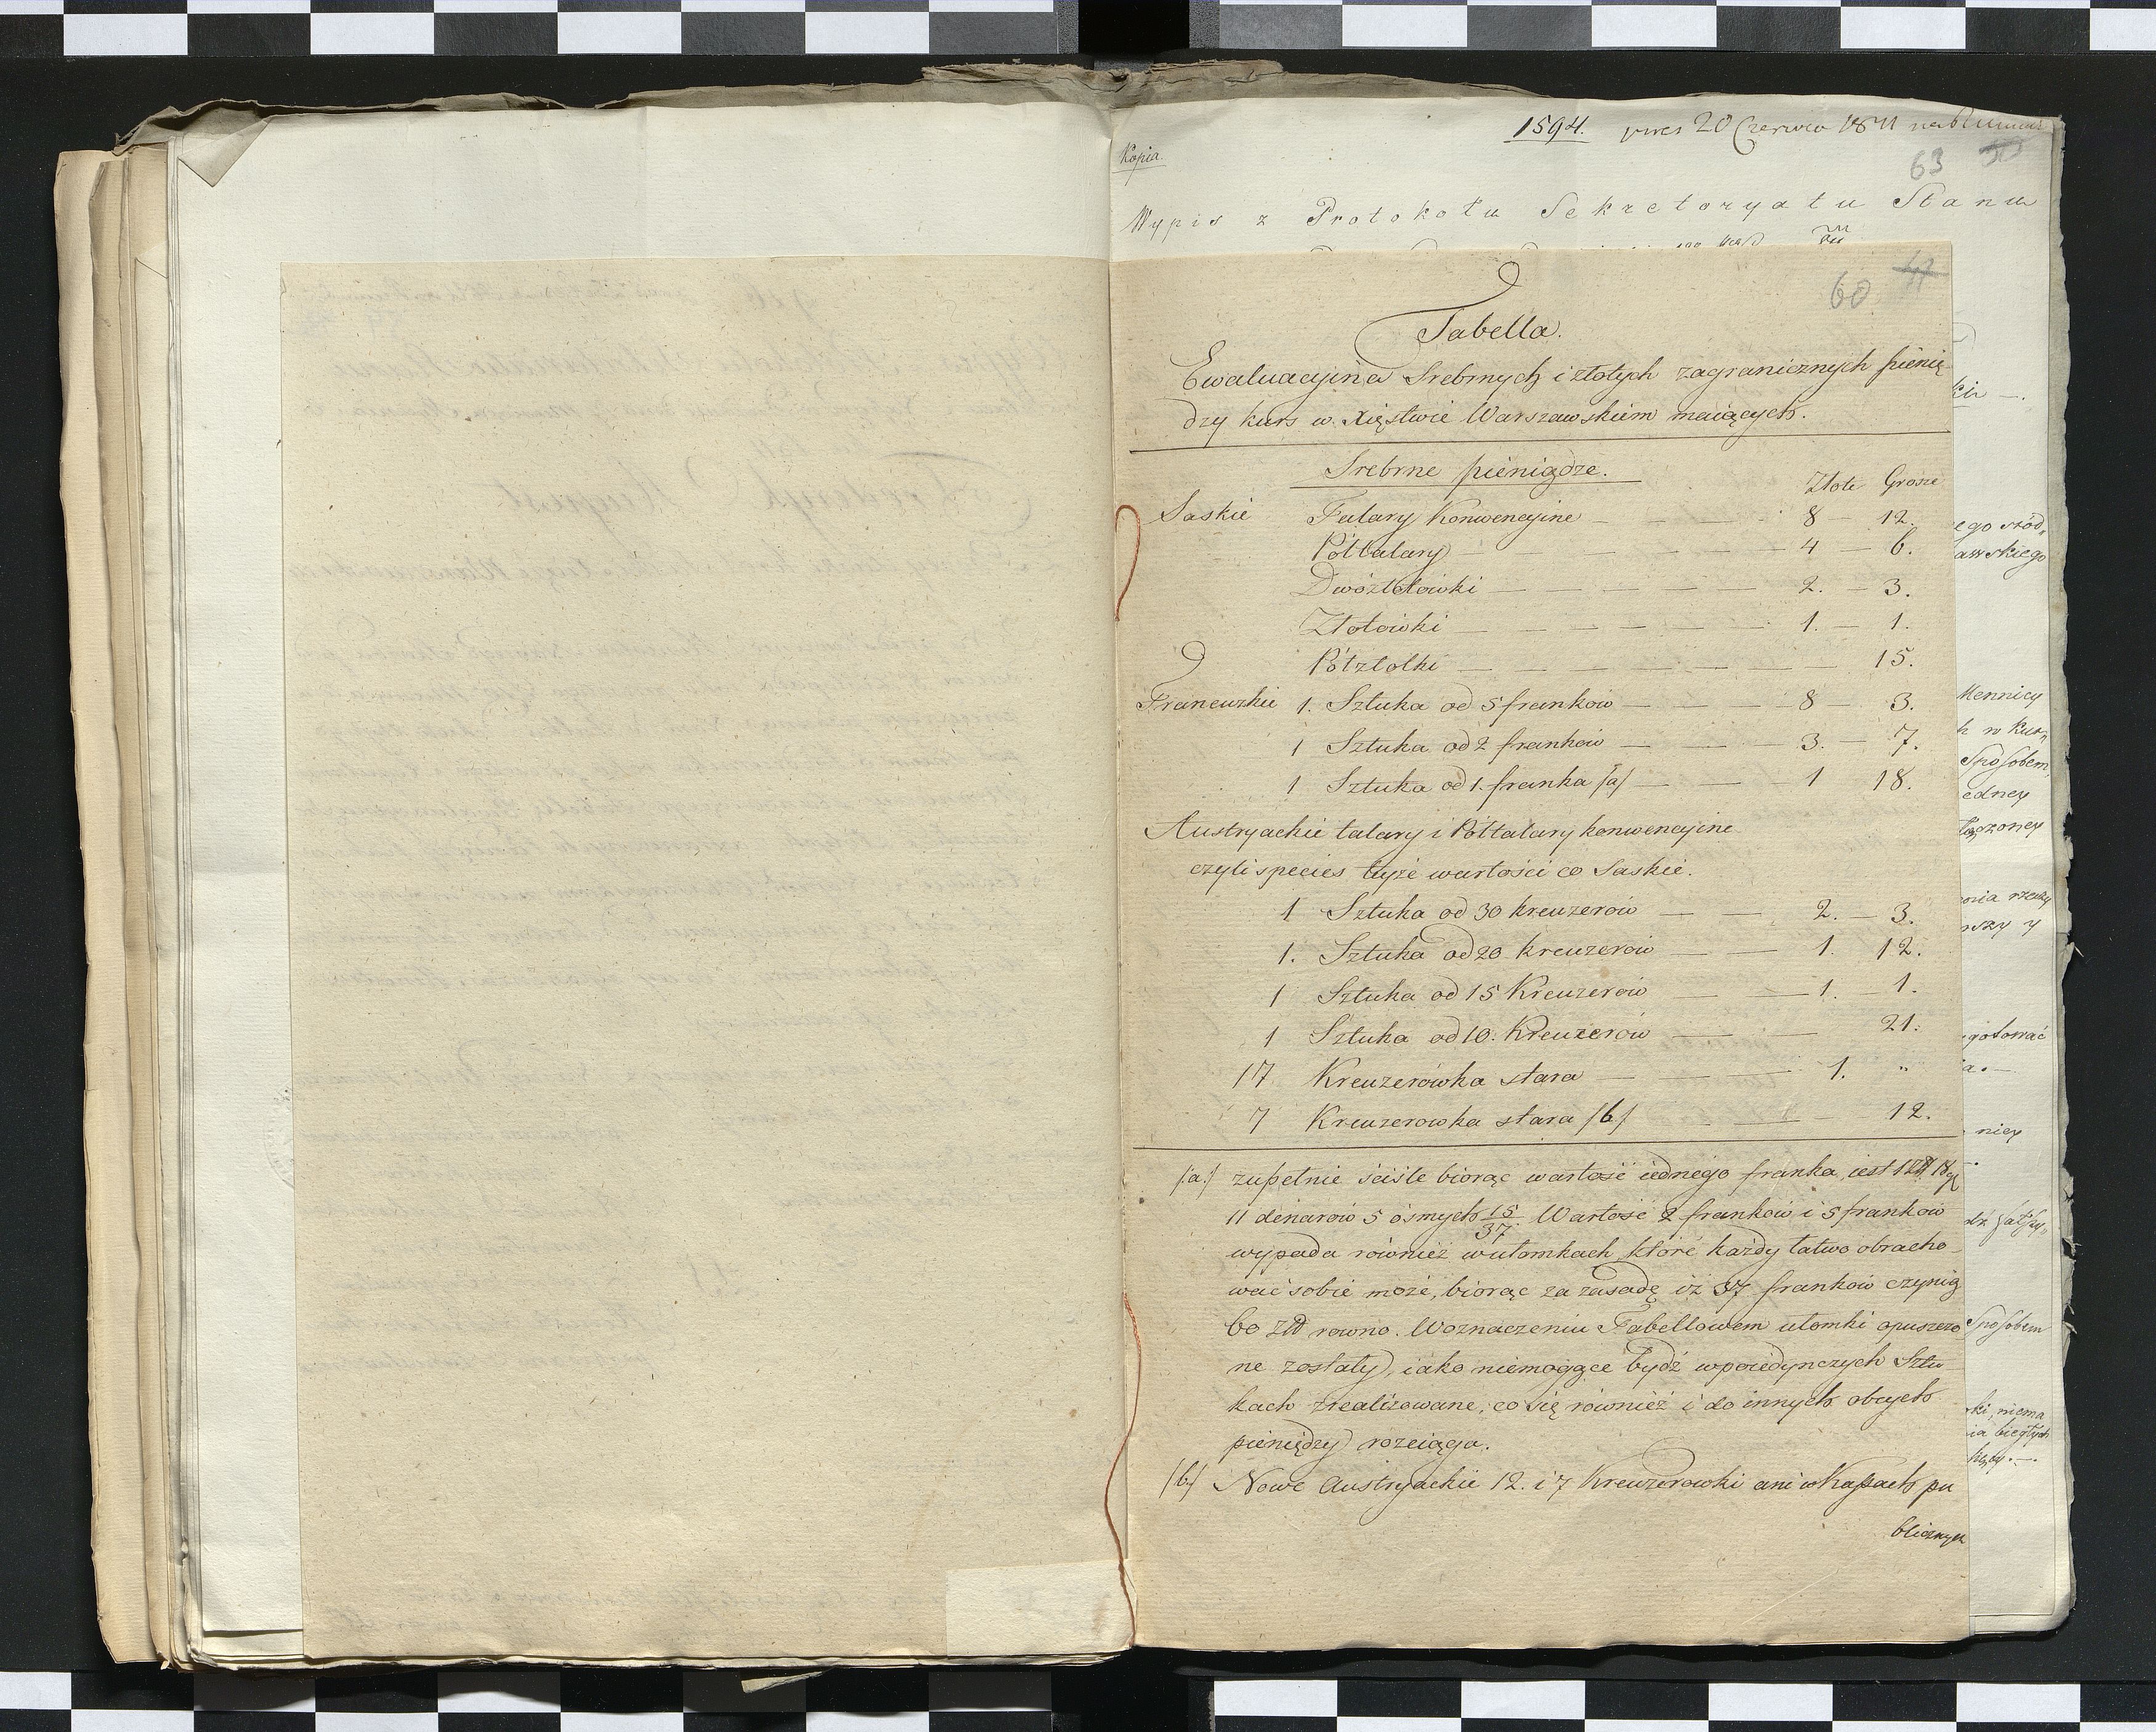 1594. 20 Czerwca 1811
Kopia.
63
Wypis z Protokołu Sekretaryatu Stanu
60
Tabella.
Ewaluacyjna Srebrnych i złotych zagranicznych pienię-
dzy kurs w. Xięstwie Warszawskiem maiących.
Srebrne pieniądze.
Złote Grosze
Saskie Talary Konwencyjne — 8 — 12.
Półtalary — 4 — 6.
Dwózłotówki — 2. — 3.
Złotówki — 1. — 1.
Półzłotki — 15.
Francuzkie 1. Sztuka od 5 franków — 8 — 3.
1 Sztuka od 2 franków — 3. — 7.
1 Sztuka od 1. franka /a/ — 1 18.
Austryackie talary i Półtalary konwencyine
czyli species teyże wartości co Saskie.
1 Sztuka od 30 kreuzerów — 2. — 3.
1. Sztuka od 20 kreuzerów — 1. 12.
1 Sztuka od 15 Kreuzerów — 1. — 1.
1 Sztuka od 10. Kreuzerów — 21.
17 Kreuzerówka stara — 1. "
7 Kreuzerowka stara /b/ — 12.
/a/ zupełnie ściśle biorąc wartość iednego franka, iest 1 Zł 18 gr
11 denarów 5 ósmych 15/37. Wartość 2 franków i 5 franków
wypada również w ułomkach, które każdy łatwo obracho-
wać sobie może, biorąc za zasadę iż 37 franków czynią
60 Złł rowno. W oznaczeniu Tabellowem ułomki opuszczo
ne zostały, iako niemogące bydź w poiedynczych Sztu
kach zrealizowane, co się również i do innych obcych
pieniędzy rozciąga.
/b/ Nowe Austryackie 12. i 7 Kreuzerowki ani w Kassach pu
blicznych
kich —.
ego szód
awskiego
Mennicy
h w kur
Sposobem
edney
łączoney
nia rzeczy
rszy y
gotować
ia. —
niey
Sposobem
ki, niema
ia biegłych